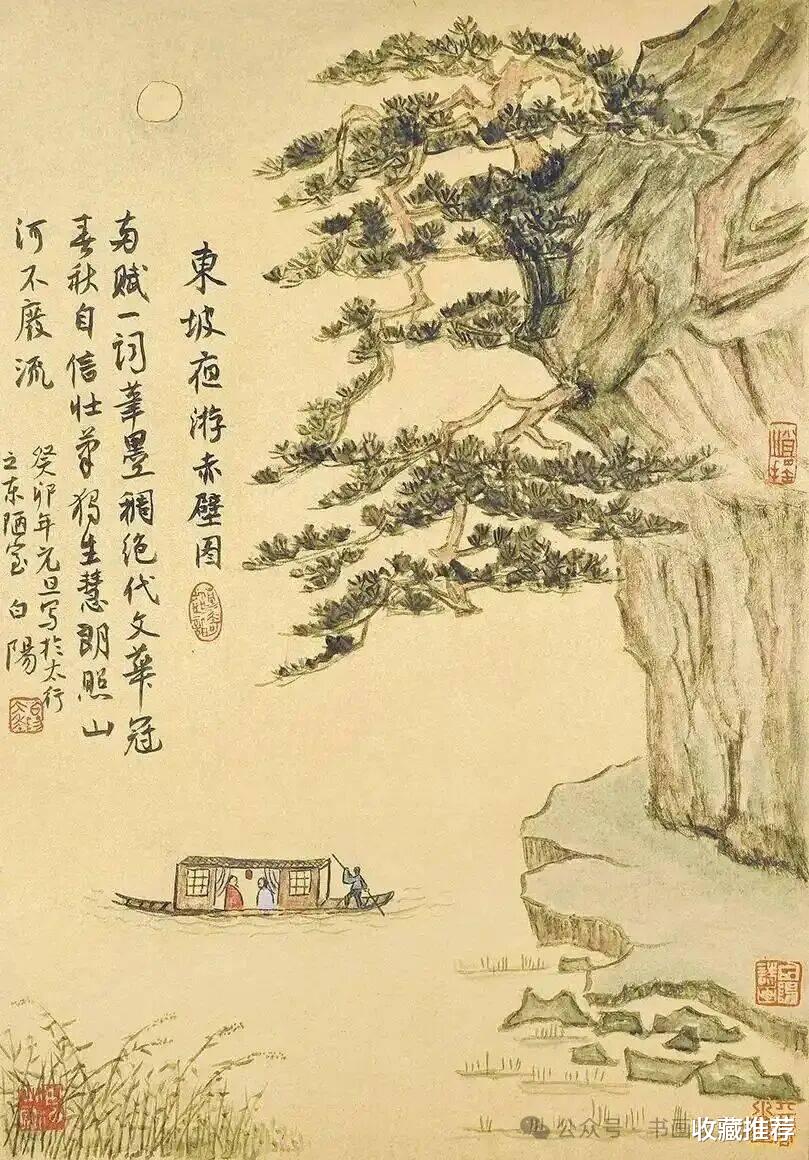 東坡夜游赤壁图
两赋一词筆墨稠绝代文華冠
春秋自信壮生慧朗照山
河不廢流
癸卯年元旦写於太行
之东陋室 白陽
公众号 书画
收藏推荐